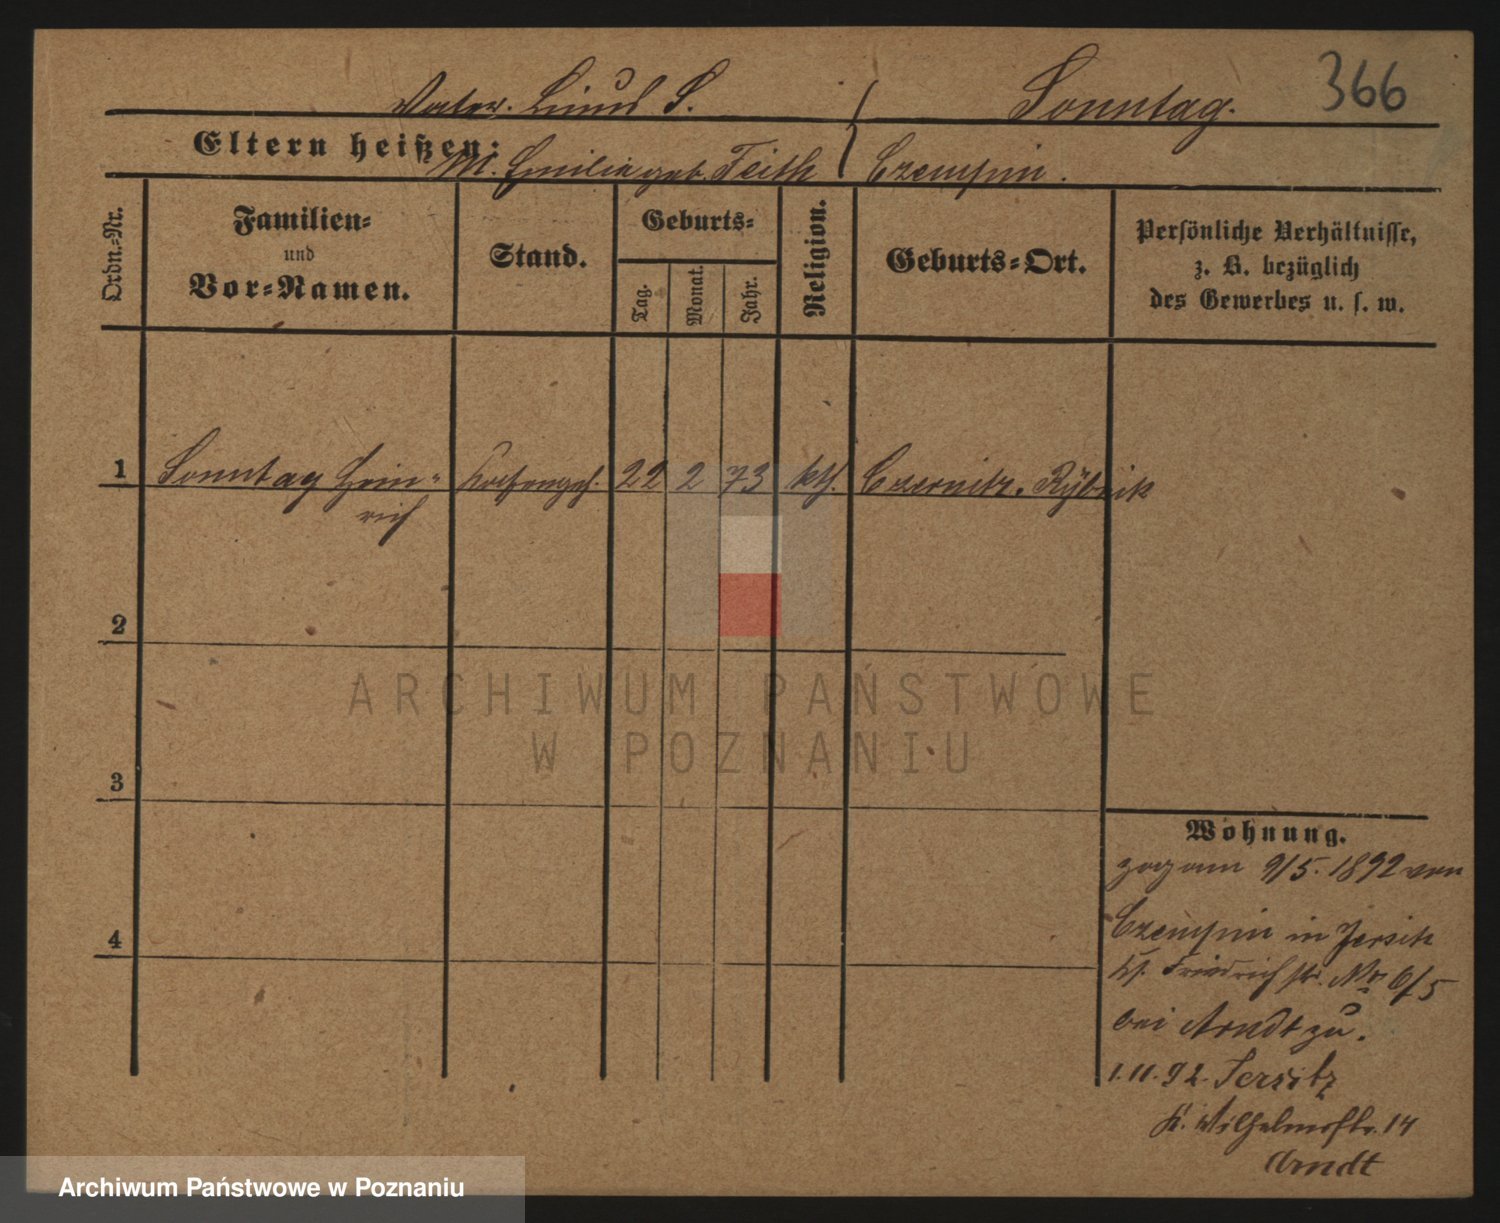 366
Vater. S. Sonntag.
Eltern heißen:
M. Emilie geb. Feith Czempin.
Ordn.-Nr.
Familien-
und
Vor-Namen.
Stand.
Geburts-
Tag.
Monat.
Jahr.
Religion.
Geburts-Ort.
Persönliche Verhältnisse,
z. B. bezüglich
des Gewerbes u. s. w.
1 Sonntag Hein- 22 2 73 kth. Czernitz. Rybnik
rich
2
3
4
Wohnung.
zog am 9/5. 1892 von
Czempin in Jersitz
Kl. Friedrichstr. No 6/5
bei Arndt zu.
1.11.92. Jersitz
K. Wilhelmstr. 14
Arndt
ARCHIWUM PAŃSTWOWE
W POZNANIU
Archiwum Państwowe w Poznaniu